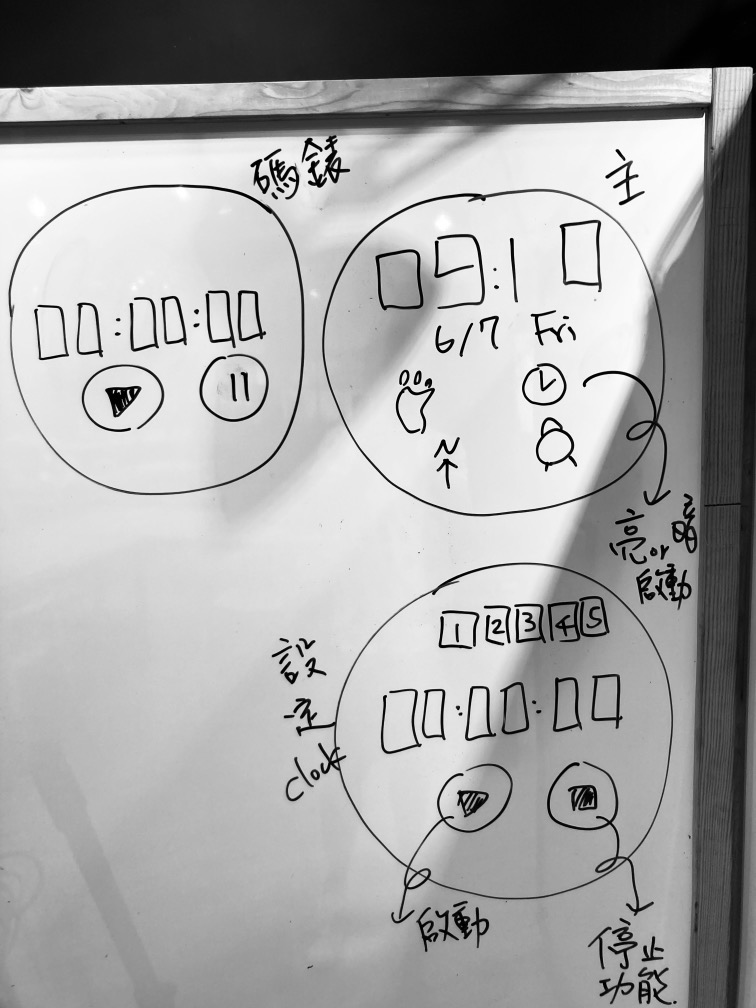 碼錶
00:00:00
主
09:10
6/7 Fri
N
亮or暗
啟動
設
定
clock
1 2 3 4 5
00:00:00
啟動
停止
功能